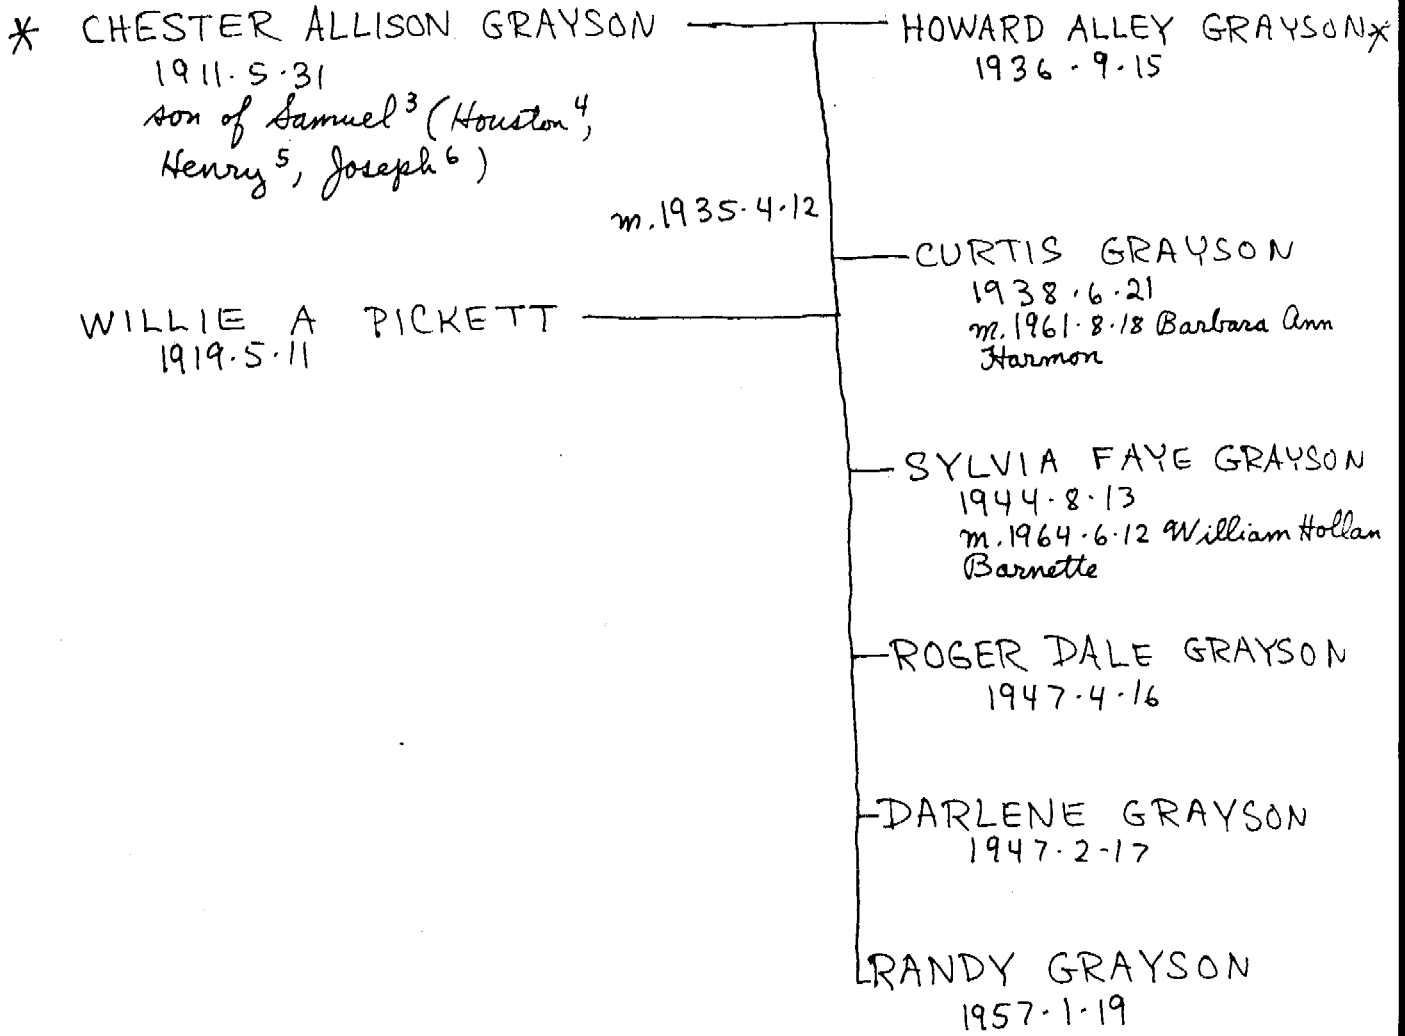 * CHESTER ALLISON GRAYSON
1911.5.31
son of Samuel³ (Houston⁴,
Henry⁵, Joseph⁶)
m. 1935.4.12
WILLIE A PICKETT
1919.5.11
HOWARD ALLEY GRAYSON*
1936.9.15
CURTIS GRAYSON
1938.6.21
m. 1961.8.18 Barbara Ann
Harmon
SYLVIA FAYE GRAYSON
1944.8.13
m. 1964.6.12 William Hollan
Barnette
ROGER DALE GRAYSON
1947.4.16
DARLENE GRAYSON
1947.2-17
RANDY GRAYSON
1957.1.19